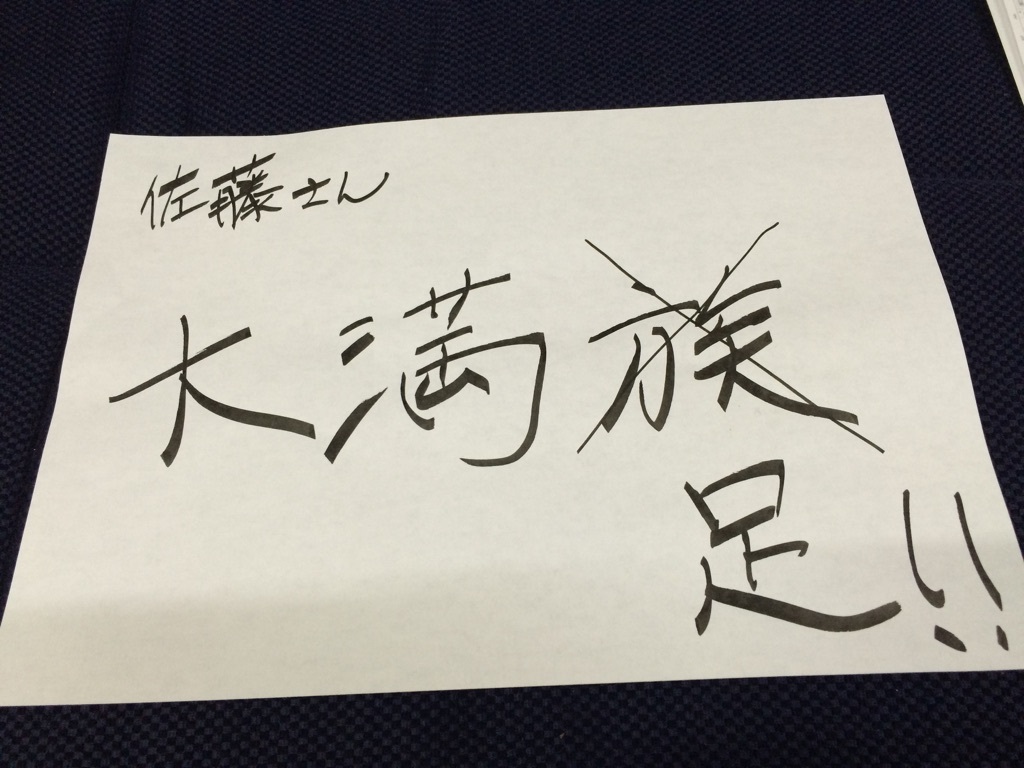 佐藤さん
大満族
足!!